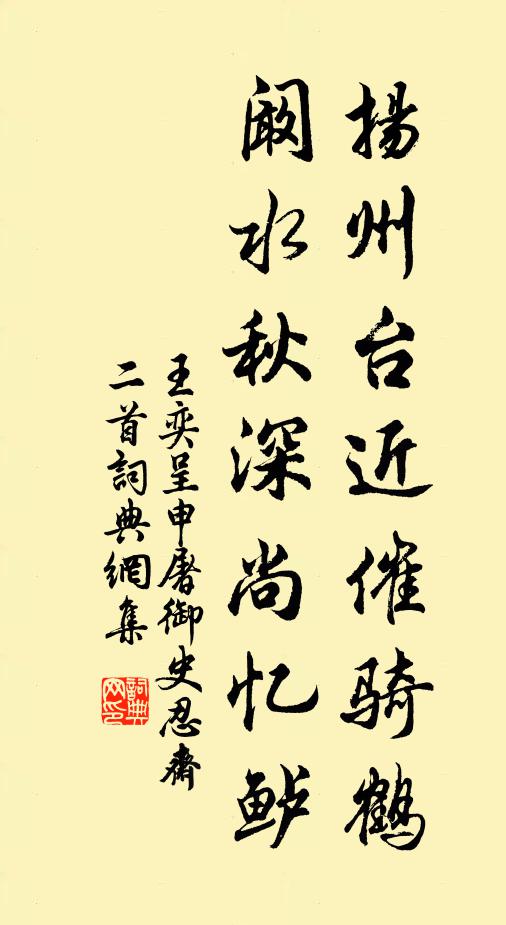 揚州台近催騎鶴
阚水秋深尚忆鲈
王奕呈申屠御史忍齋
二首詞典網集
詞典
网印